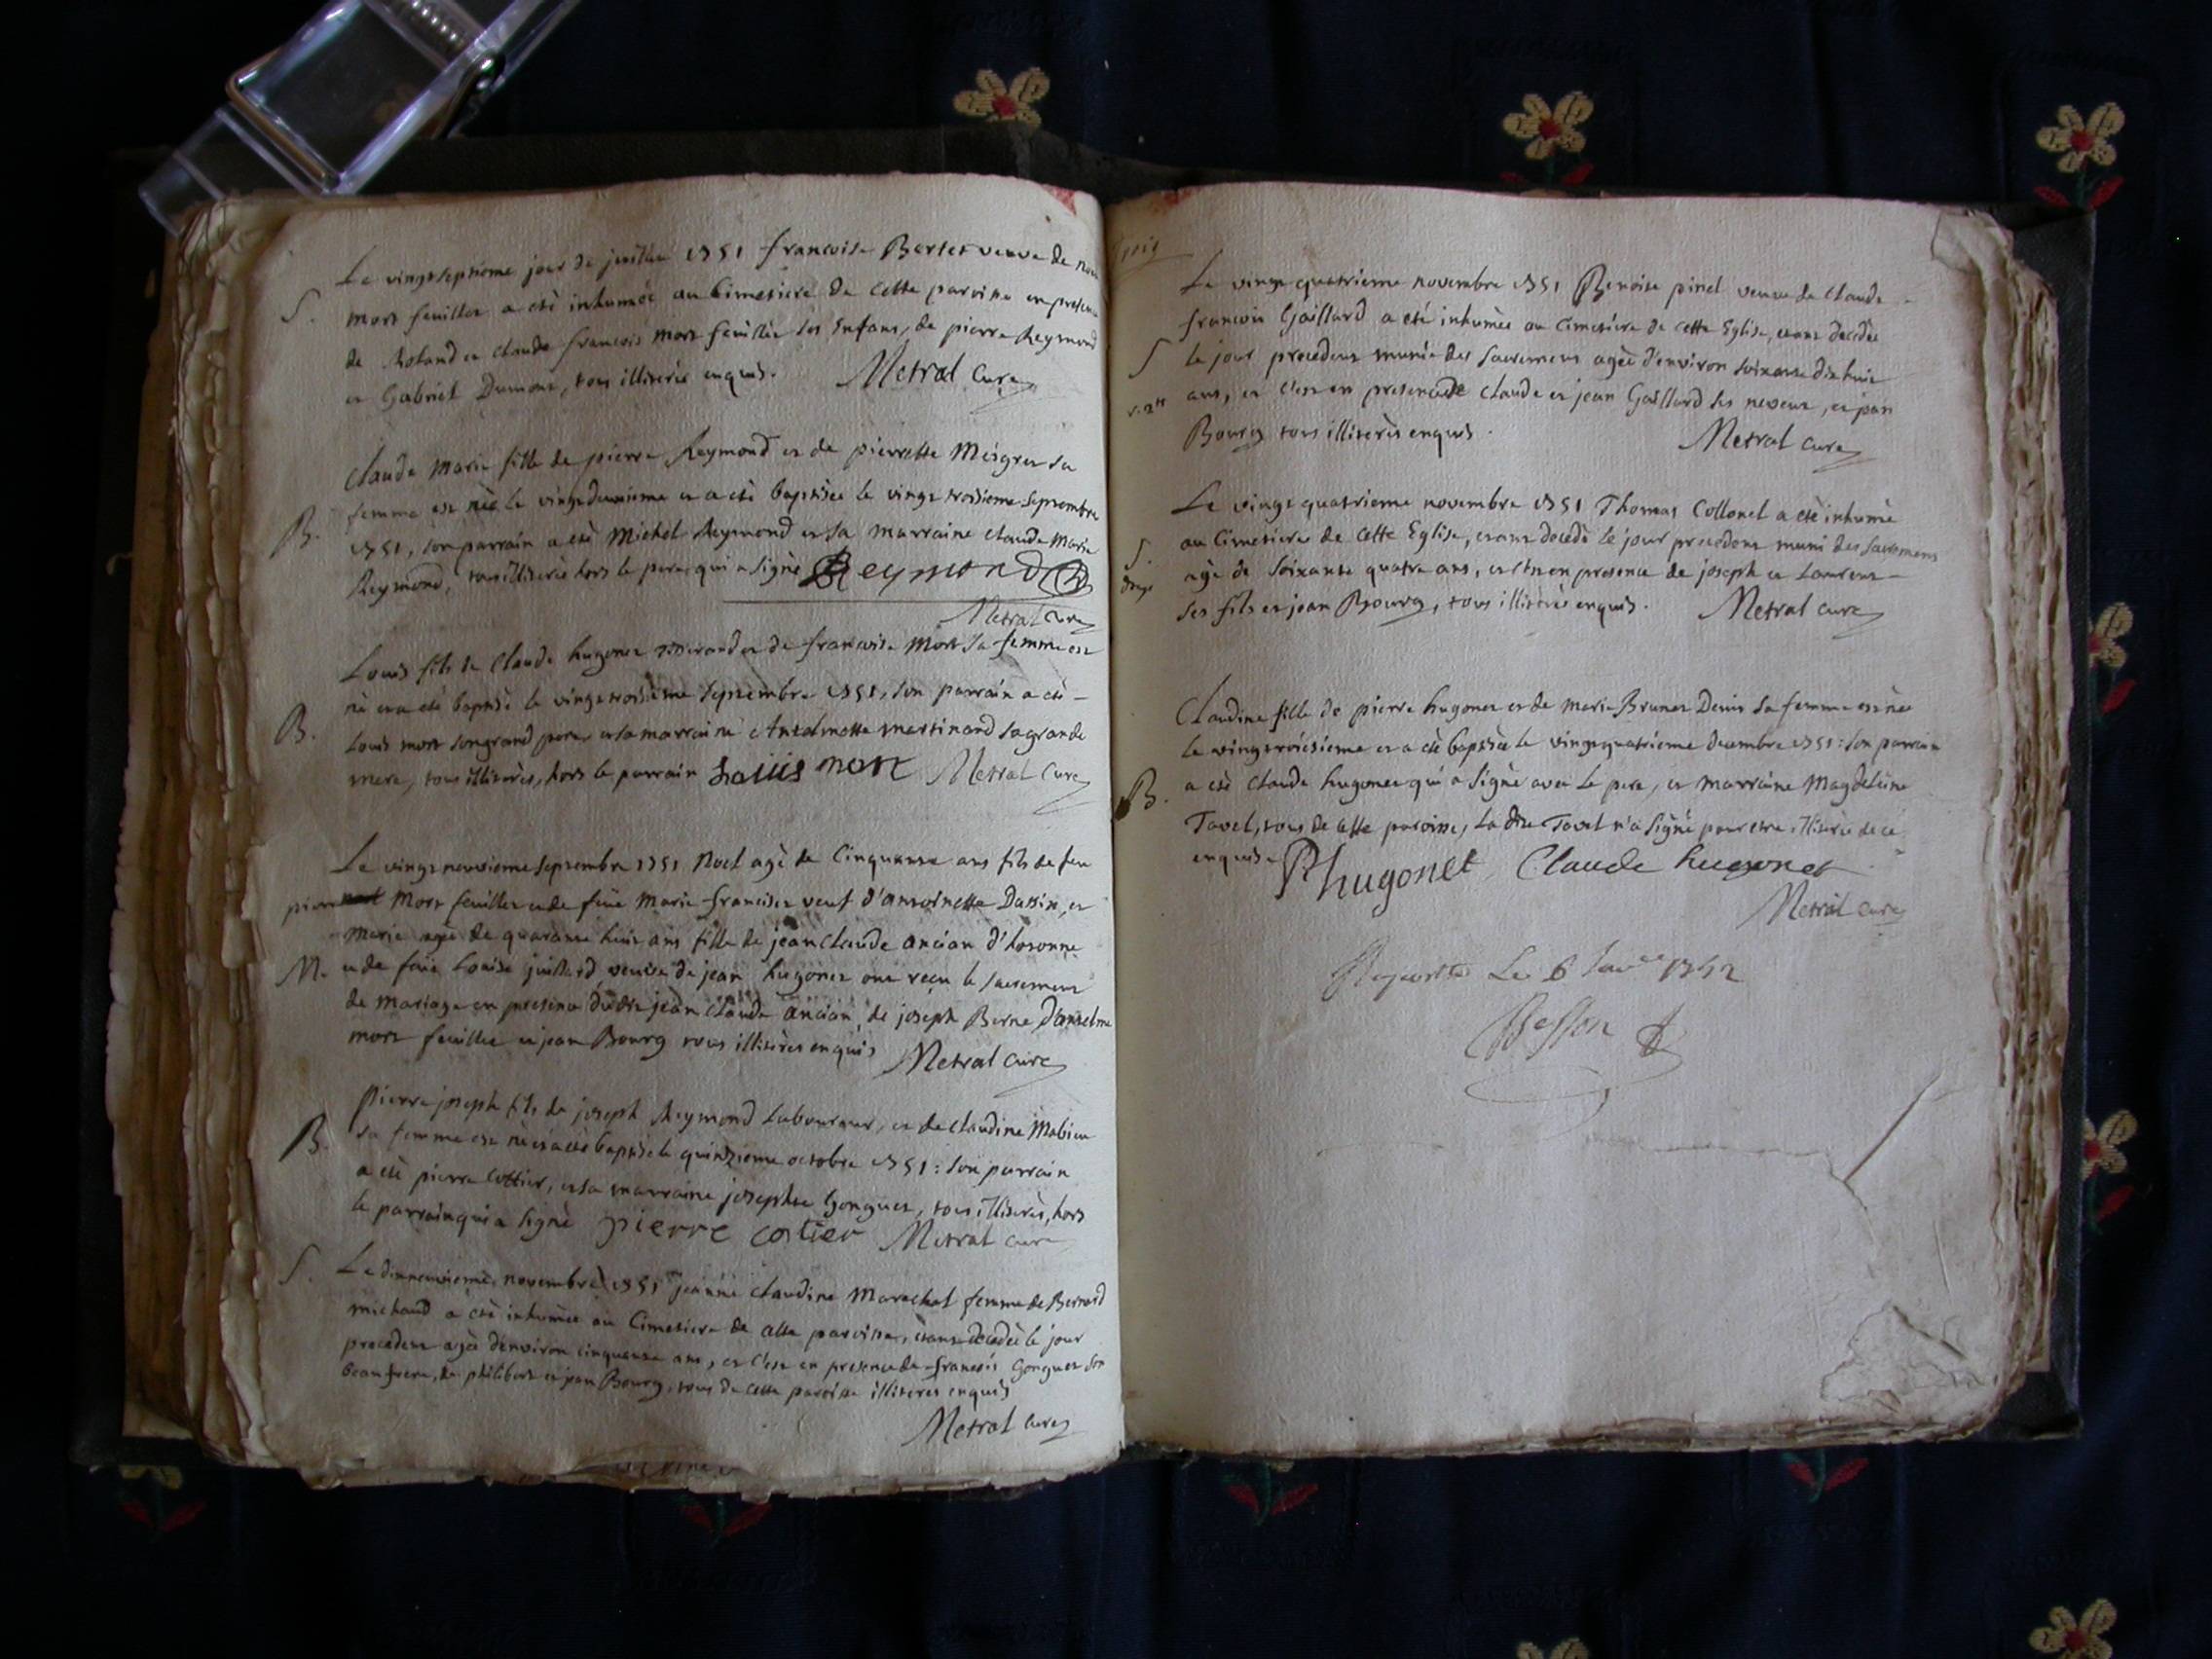 Le vingt septieme jour de juillet 1751 francoise Bertet veuve de
S. mort feuillet a eté inhumée au Cimetiere de cette paroisse en presence
de Roland et Claude francois mort feuillet ses Enfans, de pierre Reymond
et Gabriel Dumont, tous illiterés enquis. Metral Curé
Claude Marie fille de pierre Reymond et de pierrette Meigret sa
B. femme est née le vingt deuxieme et a eté baptisée le vingt troisieme septembre
1751, son parrain a eté Michel Reymond et sa marraine Claude Marie
Reymond, tous illiterés hors le pere qui a signé Reymond
Metral Curé
Louis fils de Claude hugonet et de francoise Mort sa femme est
né et a eté baptisé le vingt troisieme septembre 1751, son parrain a eté
B. Louis mort son grand pere et sa marraine Antelmette martinand sa grande
mere, tous illiterés, hors le parrain Louis mort Metral Curé
Le vingt neuvieme septembre 1751 Noel agé de Cinquante ans fils de feu
pierre Mort feuillet et de feüe Marie francises veuf d'antoinette Dassin, et
Marie agée de quarante huit ans fille de jean Claude ancian d'
M. et de feüe Louise juillard, veuve de jean hugonet ont reçu le sacrement
de mariage en presence dudit jean Claude ancian, de joseph Berne d'antelme
mort feuillet et jean Bourg tous illiterés enquis Metral Curé
Pierre joseph fils de joseph Reymond Laboureur, et de Claudine Mabieu
B. sa femme est né et a eté baptisé le quinzieme octobre 1751: son parrain
a eté pierre Cottier, et sa marraine josephte Gonguet, tous illiterés, hors
le parrain qui a signé pierre cotier Metral Curé
S. Le dixneuvieme novembre 1751 jeanne Claudine Marechal femme de Bernard
michaud a eté inhumée au Cimetiere de cette paroisse, etant decedée le jour
precedent agée d'environ cinquante ans, et c'est en presence de francois Gonguet son
beau frere, de philibert et jean Bourg, tous de cette paroisse illiterés enquis
Metral Curé
Le vingt quatrieme novembre 1751 Benoite pinel veuve de Claude
francois Gaillard a eté inhumée au Cimetiere de cette Eglise, etant decedée
S le jour precedent munie des sacremens agée d'environ soixante dix huit
ans, et c'est en presence de Claude et jean Gaillard ses neveux, et jean
Bourg tous illiterés enquis. Metral Curé
Le vingt quatrieme novembre 1751 Thomas Collonel a eté inhumé
S. au Cimetiere de cette Eglise, etant decedé le jour precedent muni des sacremens
agé de soixante quatre ans, et c'est en presence de joseph et Laurent
ses fils et jean Bourg, tous illiterés enquis. Metral Curé
Claudine fille de pierre hugonet et de marie Brunet Denis sa femme est née
le vingt troisieme et a eté baptisée le vingt quatrieme decembre 1751: son parrain
B. a eté Claude hugonet qui a signé avec le pere, et marraine Magdeleine
Tavel, tous de cette paroisse, la dite Tavel n'a signé pour etre illiterée de ce
enquise Phugonet Claude hugonet
Metral Curé
Le 6 1752
Besson